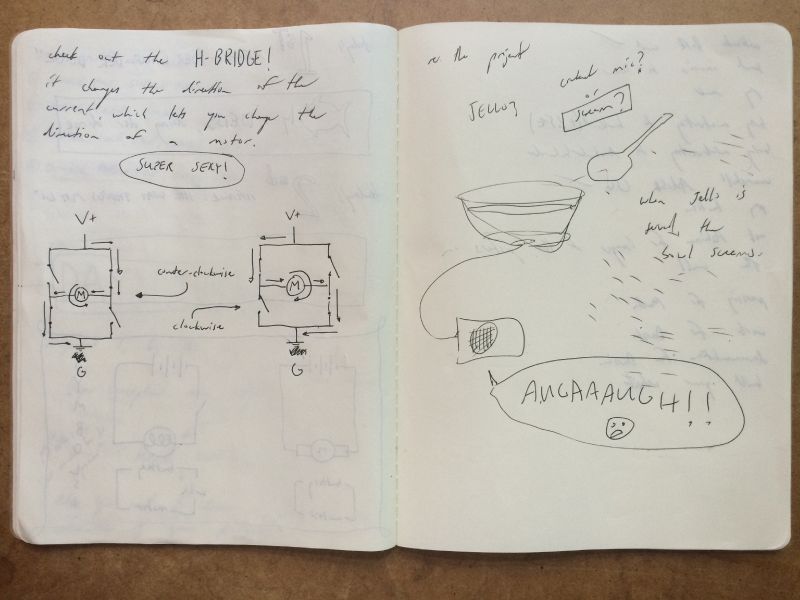 check out the H-BRIDGE!
it changes the direction of the
current, which lets you change the
direction of a motor.
SUPER SEXY!
V+
V+
M
M
counter-clockwise
clockwise
G
G
re: the project
contact mic?
or
scream?
JELLO?
when Jello is
the
bowl screams.
AUGAAAUGH!!